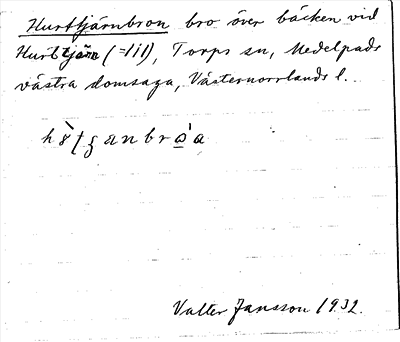 Hurttjärnbron bro över bäcken vid
Hurttjärn (=lil), Torps sn, Medelpads
västra domsaga, Västernorrlands l.
Valter Jansson 1932.